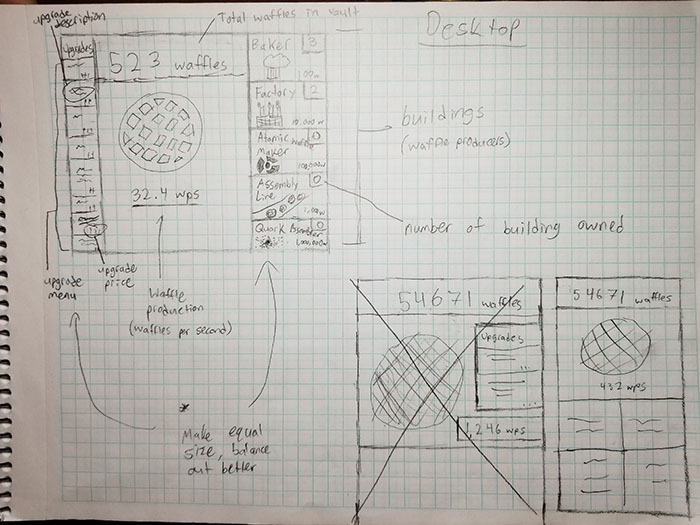 upgrade
description
Total waffles in vault
Desktop
Upgrades
523 waffles
Baker 3
100w
Factory 2
10,000w
Atomic waffle 0
maker
100,000w
Assembly 0
Line
1,000w
Quark Assembler 0
1,000,000w
32.4 wps
buildings
(waffle producers)
number of building owned
upgrade
menu
upgrade
price
Waffle
production
(waffles per second)
*
Make equal
size, balance
out better
54671 waffles
Upgrades
1,246 wps
54671 waffles
432 wps